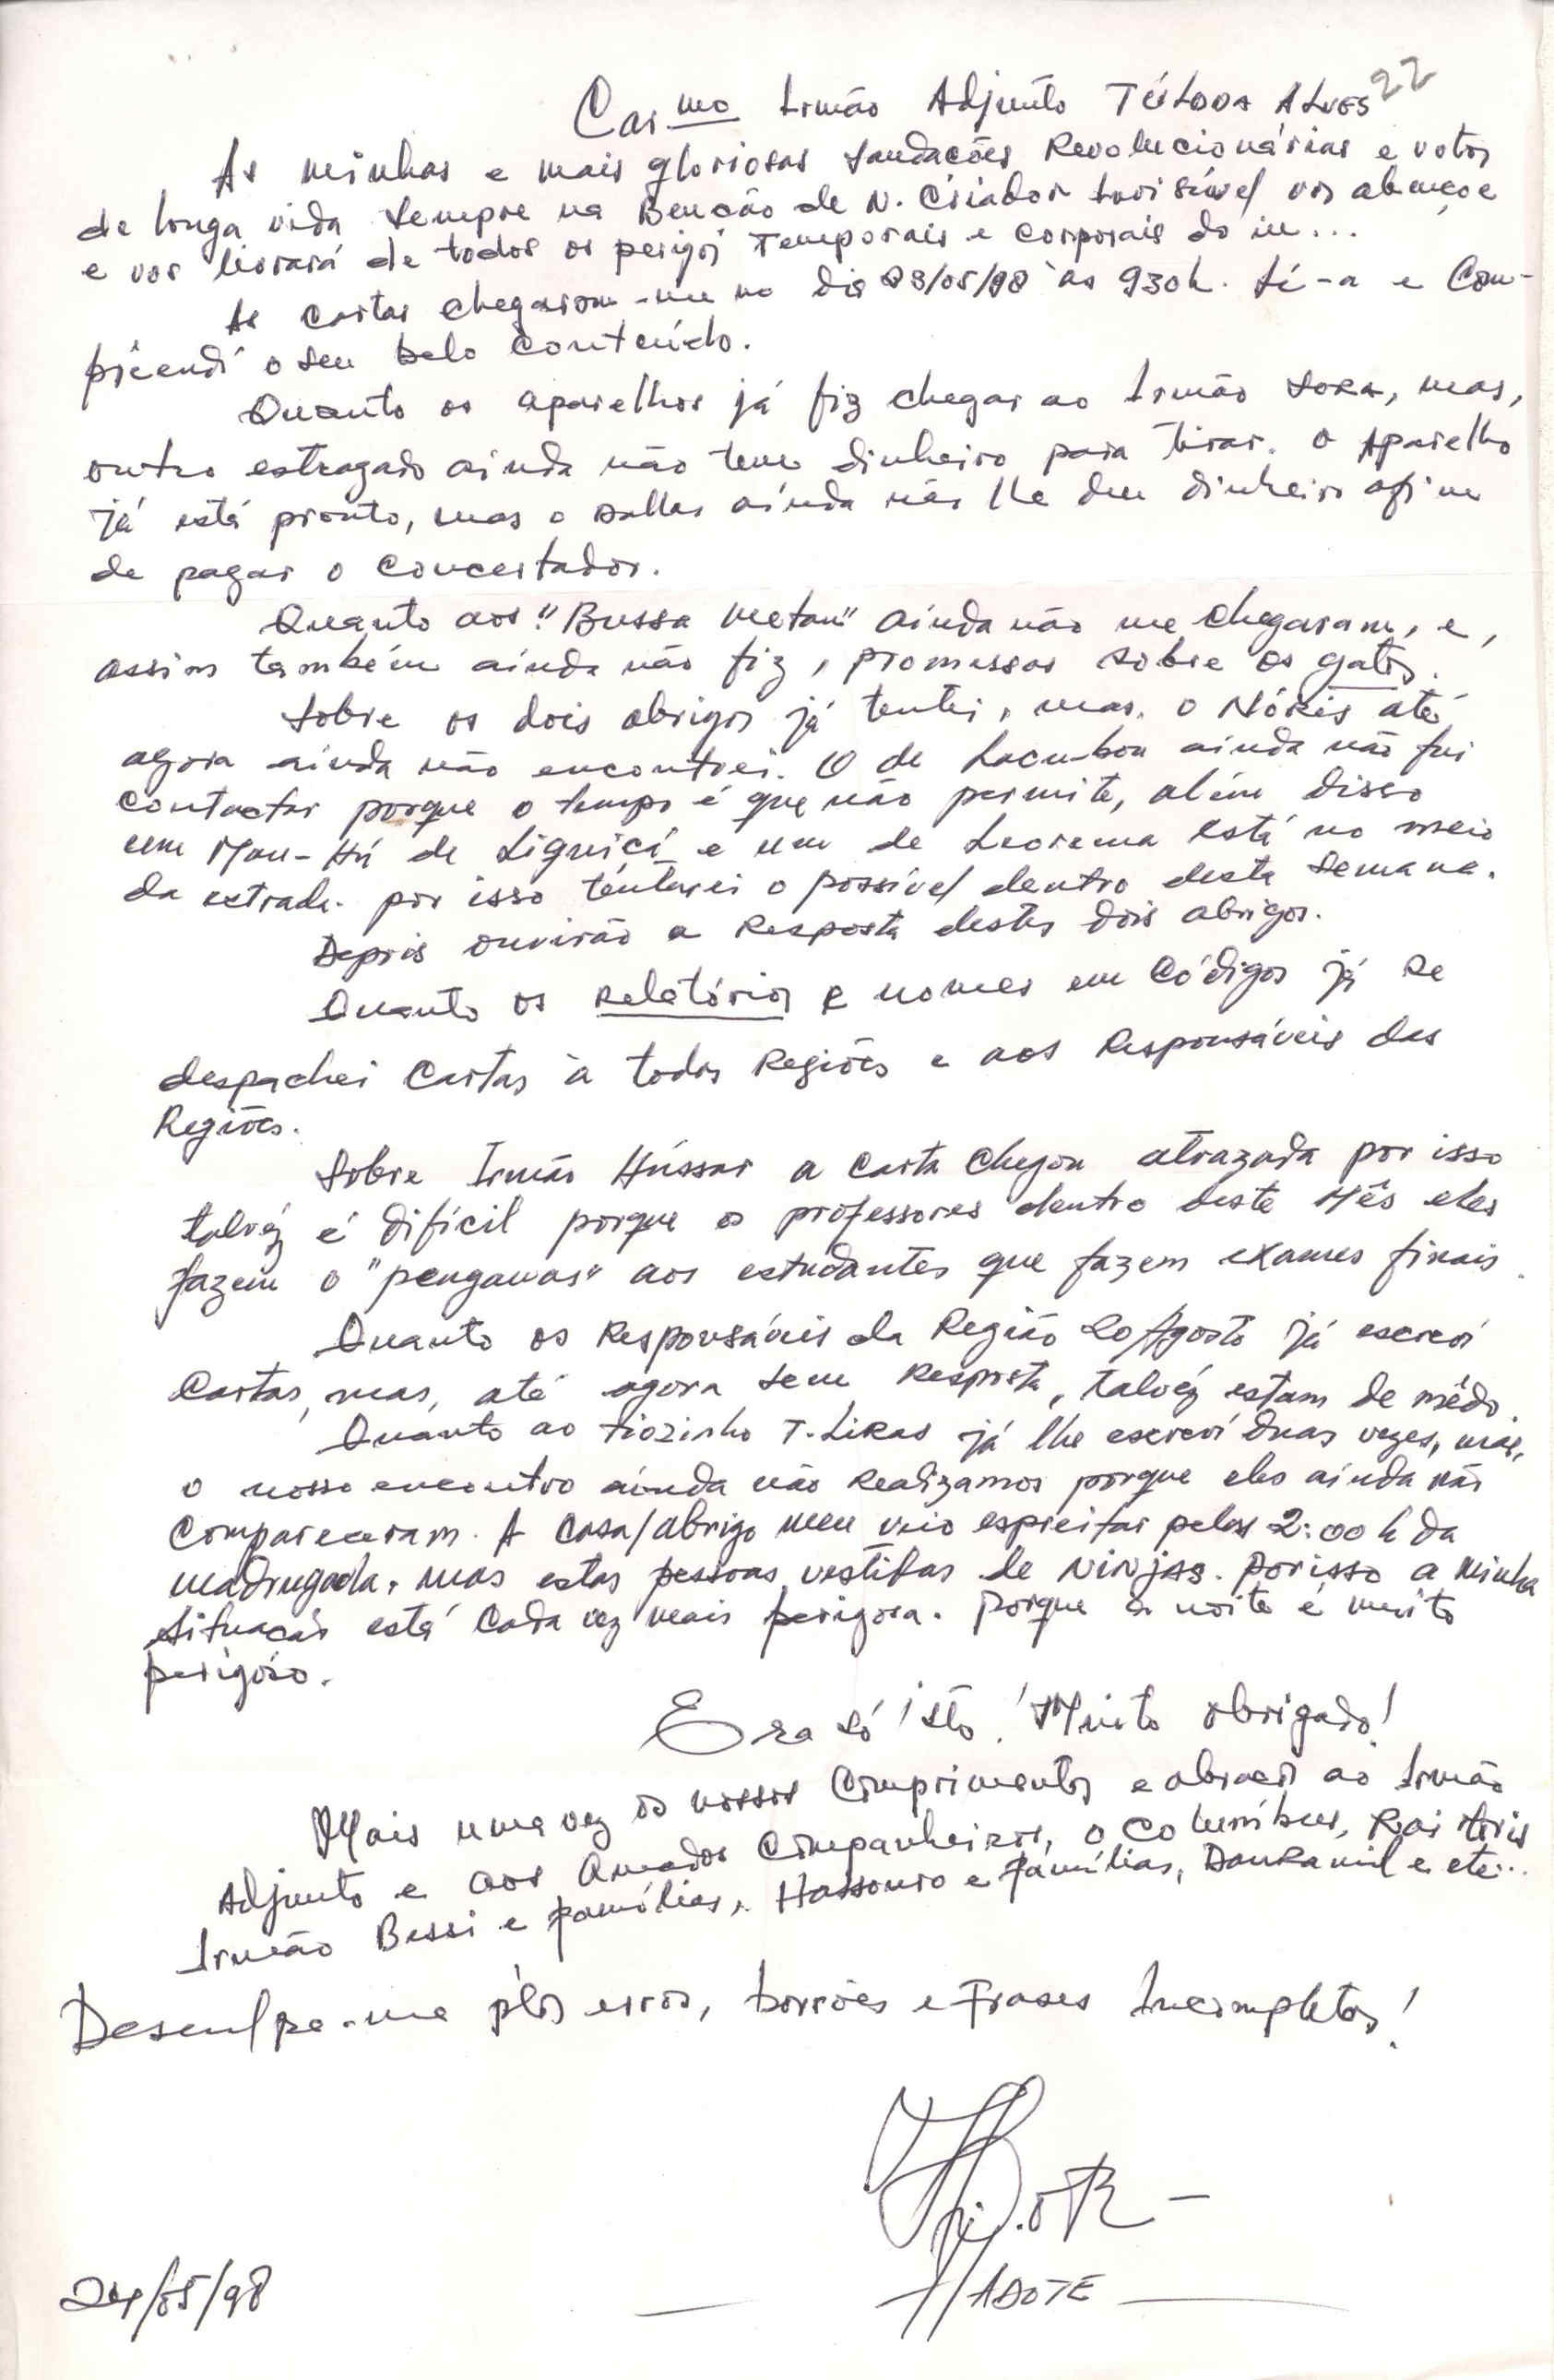 22
Carmo Irmão Adjunto TÚLODA ALVES
As minhas e mais gloriosas Saudações Revolucionárias e votos
de longa vida sempre na Benção de N. Criador Invisível vos abençoe
e vos livrará de todos os perigos Temporais e corporais do in...
As cartas chegaram-me no dia 23/05/98 às 930h. Lí-a e Com-
priendí o seu belo conteúdo.
Quanto os aparelhos já fiz chegar ao Irmão Sora, mas,
outro estragado ainda não tem dinheiro para tirar. O Aparelho
já está pronto, mas o ainda não lhe deu dinheiro afim
de pagar o concertador.
Quanto aos "Bussa metan" ainda não me chegaram, e,
assim também ainda não fiz, promessas sobre os gatos.
Sobre os dois abrigos já tentei, mas, o Nóris até
agora ainda não encontrei. O de Lacu-bou ainda não fui
contactar porque o tempo é que não permite, além disso
um Mau-Hú de Liquiçá e um de Leorema está no meio
da estrada. por isso tentarei o possível dentro desta semana.
Depois ouvirão a Resposta destes dois abrigos.
Quanto os relatórios e nomes em Códigos já se
despachei Cartas à todos Regiões e aos Responsáveis das
Regiões.
Sobre Irmão Hússar a carta chegou atrazada por isso
talvéz é difícil porque os professores dentro deste Mês eles
fazem o "penganas" aos estudantes que fazem exames finais.
Quanto os Responsáveis da Região 20/Agosto já escreví
Cartas, mas, até agora sem Resposta, talvéz estam de mêdo.
Quanto ao tiozinho T. Likas já lhe escreví duas vezes, mas,
o nosso encontro ainda não Realizamos porque eles ainda não
compareceram. A casa/abrigo meu veio espreitar pelas 2:00 h da
madrugada, mas estas pessoas vestidas de Ninjas. Por isso a minha
situação está cada vez mais perigosa. Porque a noite é muito
perigoso.
Era só isto! Muito obrigado!
Mais uma vez os nossos Comprimentos e abraços ao Irmão
Adjunto e aos Amados Companheiros, o Columbus, Rai
Irmão Bessi e famílias, Hassouro e famílias, Daukamil e etc...
Desculpe-me plos erros, borrões e Frases Incompletas!
HADOTE
24/05/98